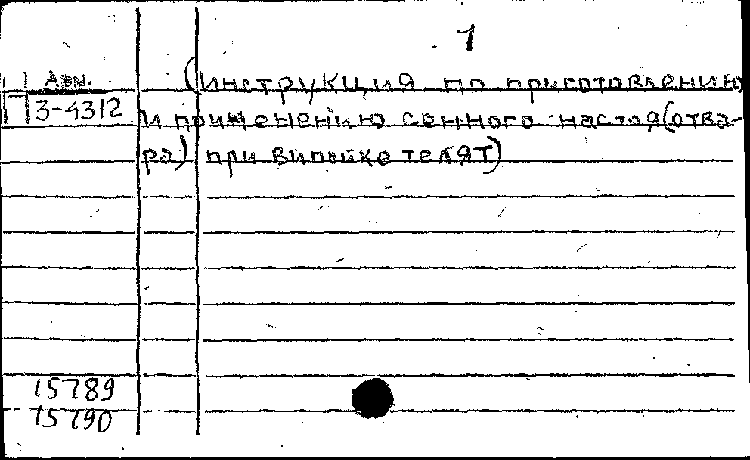 1
Авт. (Инструкция по приготовлению
П 3-4312 и применению сенного настоя (отва-
ра) при випойке телят)
15789
15790